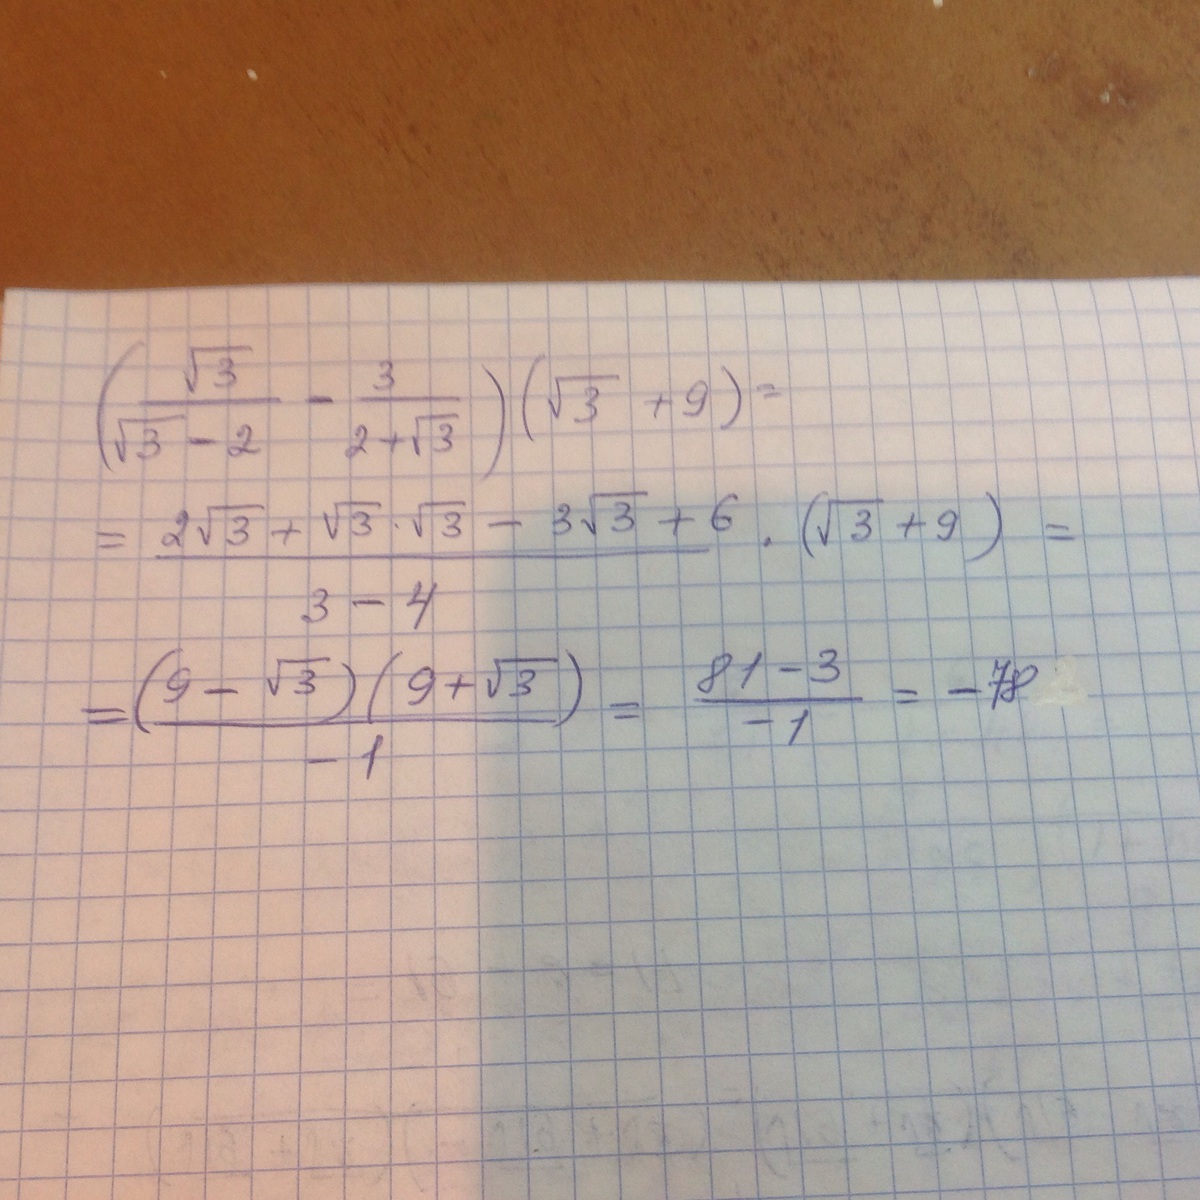 (√3/(√3 - 2) - 3/(2+√3))(√3 + 9) =
= (2√3 + √3 · √3 - 3√3 + 6)/(3 - 4) · (√3 + 9) =
= (9 - √3)(9 + √3)/(-1) = (81 - 3)/(-1) = -78